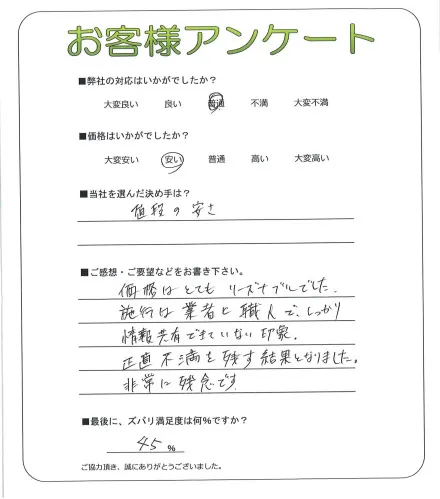 お客様アンケート
■弊社の対応はいかがでしたか？
大変良い 良い 普通 不満 大変不満
■価格はいかがでしたか？
大変安い 安い 普通 高い 大変高い
■当社を選んだ決め手は？
値段の安さ
■ご感想・ご要望などをお書き下さい。
価格はとてもリーズナブルでした。
施行は業者と職人で、しっかり
情報共有できていない印象。
正直不満を残す結果となりました。
非常に残念です。
■最後に、ズバリ満足度は何%ですか？
45 %
ご協力頂き、誠にありがとうございました。